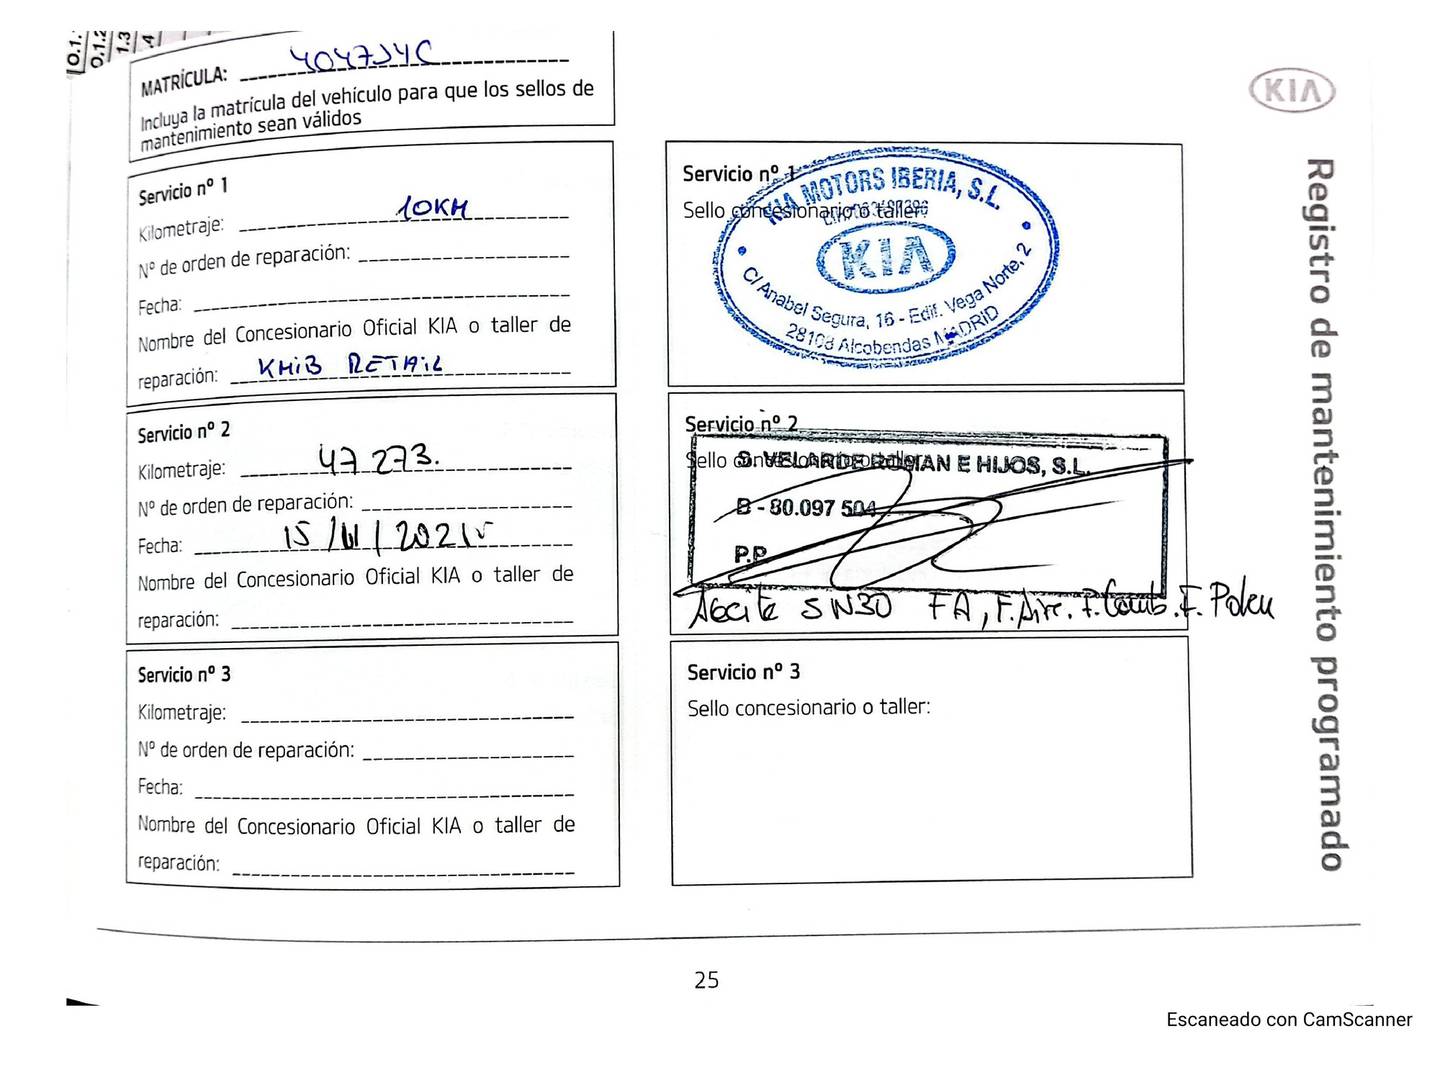 MATRÍCULA: 4047JYC
Incluya la matrícula del vehículo para que los sellos de
mantenimiento sean válidos
Servicio nº 1
Kilometraje: 10KM
Nº de orden de reparación:
Fecha:
Nombre del Concesionario Oficial KIA o taller de
reparación: KMiB RETAiL
Servicio nº 1
Sello concesionario o taller:
KIA MOTORS IBERIA, S.L.
KIA
C/ Anabel Segura, 16 - Edif. Vega Norte, 2
28108 Alcobendas MADRID
Servicio nº 2
Kilometraje: 47 273.
Nº de orden de reparación:
Fecha: 15
Nombre del Concesionario Oficial KIA o taller de
reparación:
Servicio nº 2
Sello concesionario o taller:
S. VELARDE ROMAN E HIJOS, S.L.
B - 80.097 504
P.P
Aceite 5W30 FA, F.Aire. F.Comb. F. Polen
Servicio nº 3
Kilometraje:
Nº de orden de reparación:
Fecha:
Nombre del Concesionario Oficial KIA o taller de
reparación:
Servicio nº 3
Sello concesionario o taller:
KIA
Registro de mantenimiento programado
25
Escaneado con CamScanner